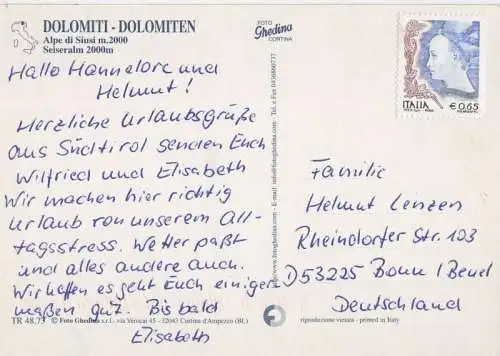 DOLOMITI - DOLOMITEN
Alpe di Siusi m.2000
Seiseralm 2000m
Hallo Hannelore und
Helmut!
Herzliche Urlaubsgrüße
aus Südtirol senden Euch
Wilfried und Elisabeth
Wir machen hier richtig
Urlaub von unserem All-
tagsstress. Wetter paßt
und alles andere auch.
Wir hoffen es geht Euch einiger
maßen gut. Bis bald
Elisabeth
TR 48.73 © Foto Ghedina s.r.l. - via Verocai 45 - 32043 Cortina d'Ampezzo (BL)
FOTO
Ghedina
CORTINA
www.fotoghedina.com - E-mail: info@fotoghedina.com - Tel. e Fax
ITALIA
€0,65
Familie
Helmut Lenzen
Rheindorfer Str. 103
D53225 Bonn / Beuel
Deutschland
riproduzione vietata - printed in Italy